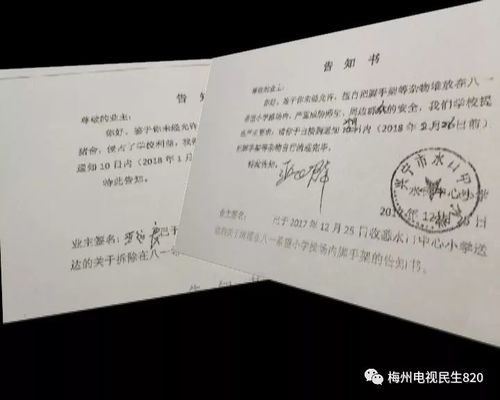 告知
尊敬的业主：
你好，鉴于你未经允许
猪舍，侵占了学校利益，我
通知10日内（2018年1月
特此告知。
业主签名：
已于
达的关于拆除在八一希
告知书
尊敬的业主：
你好，鉴于你未经允许，擅自把脚手架等杂物堆放在八一
希望小学操场内，严重威胁师生、周边群众的安全，我们学校提
出严正要求，请你于
通知10日内（2018年2月26日前）
把脚手架等杂物自行清运完毕。
特此告知。
兴宁市水口中
水口中心小学
2017年12月25
业主签名：
已于2017年12月25日收悉水口中心小学送
达的关于清理在八一希望小学操场内脚手架的告知书。
梅州电视民生820